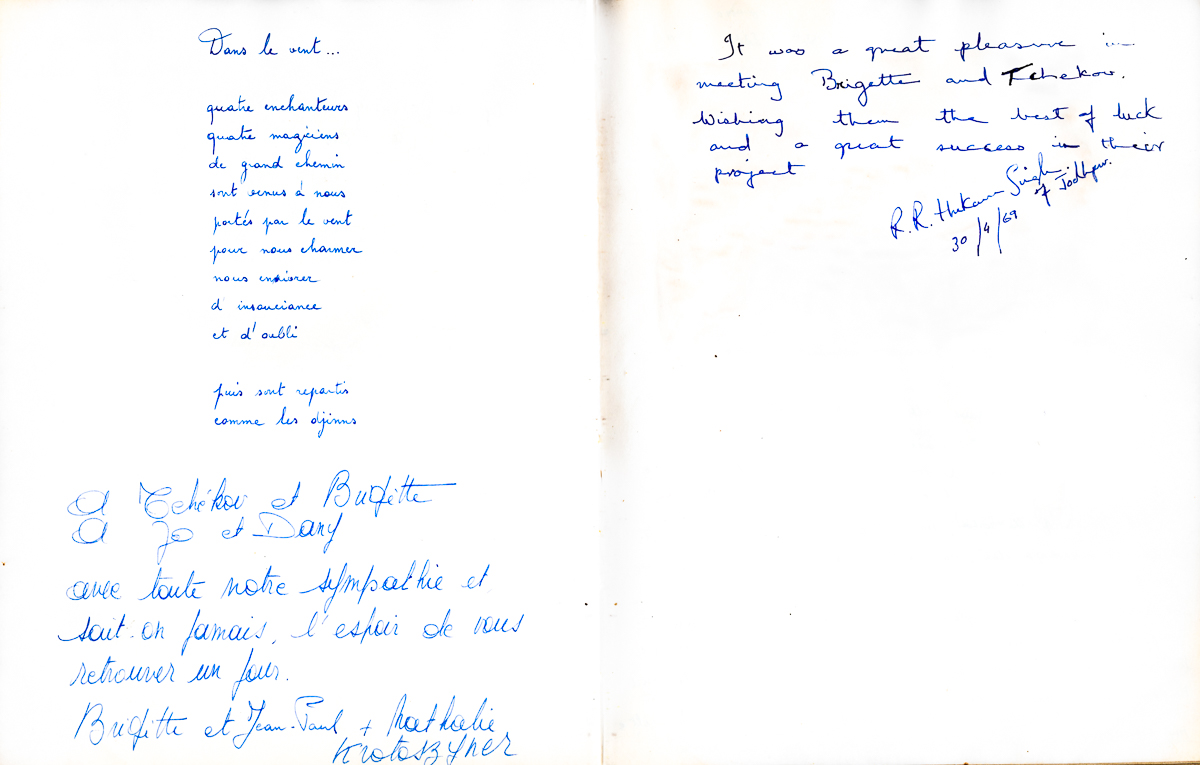 Dans le vent...
quatre enchanteurs
quatre magiciens
de grand chemin
sont venus à nous
portés par le vent
pour nous charmer
nous enivrer
d'insouciance
et d'oubli
puis sont repartis
comme les djinns
A Tchékov et Brigitte
A Jo et Dany
avec toute notre sympathie et
sait-on jamais, l'espoir de vous
retrouver un jour.
Brigitte et Jean-Paul + Nathalie
Krotoszyner
It was a great pleasure in
meeting Brigette and Tchekov.
Wishing them the best of luck
and a great success in their
project
R.R. Singh
of Jodhpur.
30/4/69